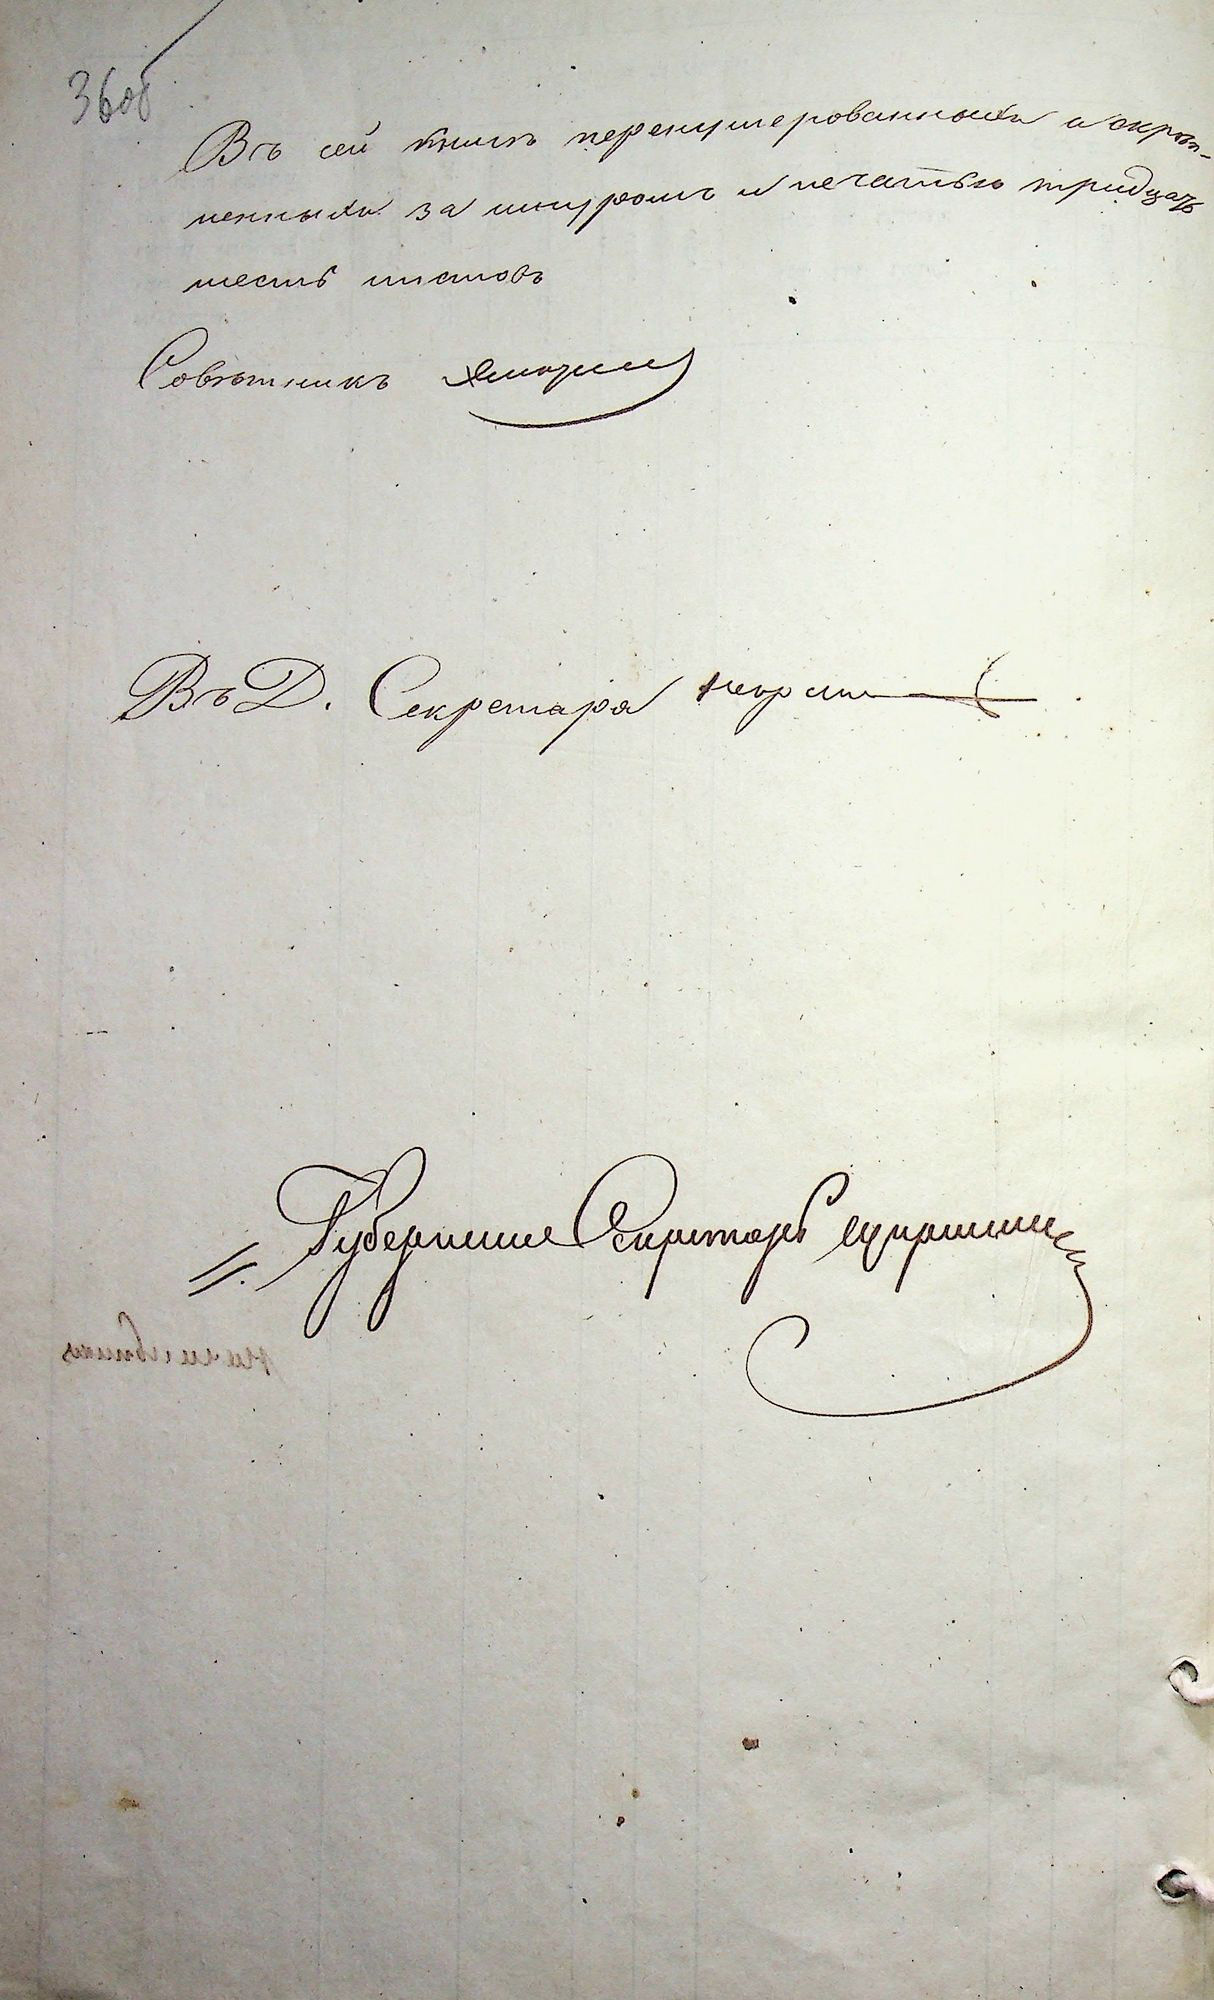 36об
Въ сей книгѣ перенумерованныхъ и скрѣп-
ленныхъ за шнуромъ и печатью тридцать
шесть листовъ
Совѣтникъ
Въ Д. Секретаря
Губернскiй Секретарь